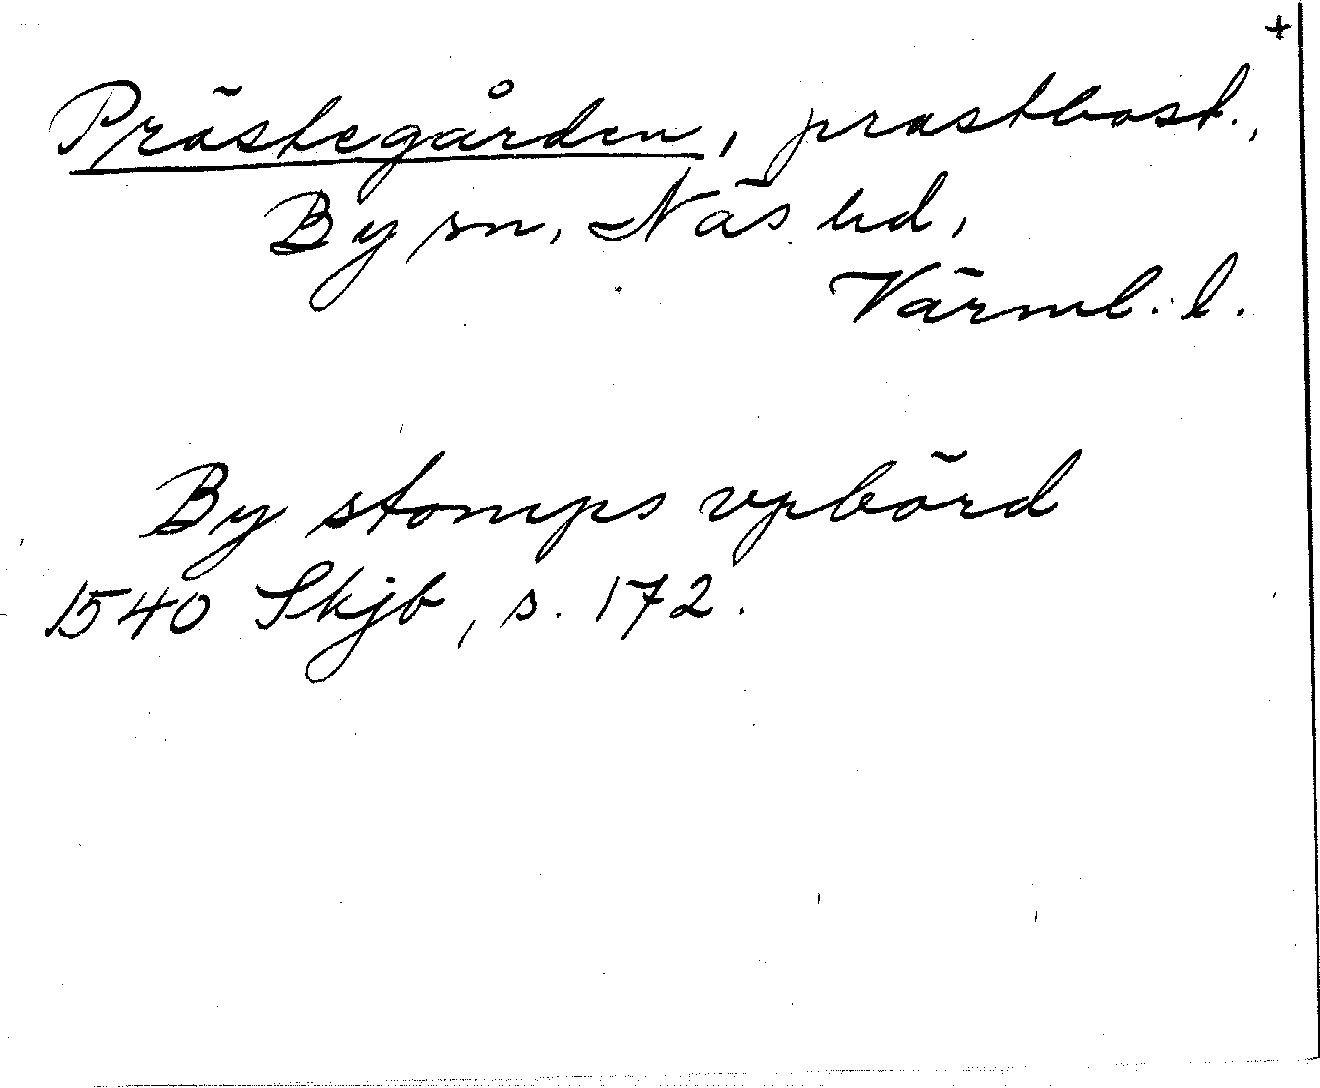 +
Prästegården, prästbost.,
By sn, Näs hd,
Värml. l.
By stomps vpbörd
1540 Skjb, s. 172.